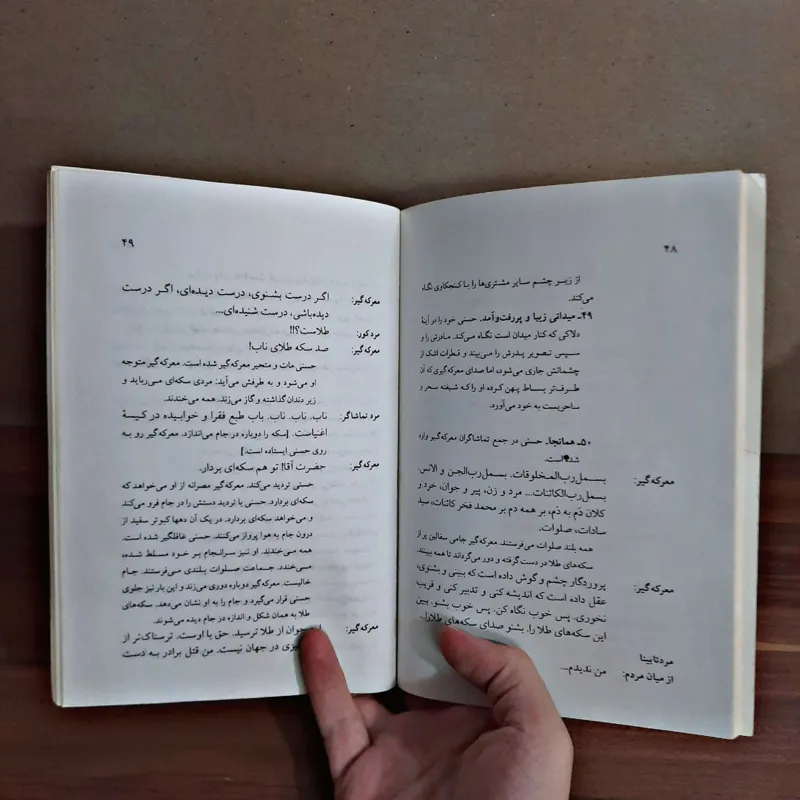 ۴۸
از زیر چشم سایر مشتری‌ها را با کنجکاوی نگاه
می‌کند.
۴۹ـ میدانی زیبا و پررفت‌وآمد. حسنی خود را در آینهٔ
دلاکی که کنار میدان است نگاه می‌کند. مادرش را و
سپس تصویر پدرش را می‌بیند و قطرات اشک از
چشمانش جاری می‌شود، اما صدای معرکه‌گیری که آن
طرف‌تر بساط پهن کرده او را که شیفته سحر و
ساحریست به خود می‌آورد.
۵۰ـ همانجا. حسنی در جمع تماشاگران معرکه‌گیر وارد
شده است.
معرکه‌گیر: بسمل‌رب‌المخلوقات. بسمل‌رب‌الجن و الانس.
بسمل‌رب‌الکائنات... مرد و زن، پیر و جوان، خرد و
کلان دَم به دَم، بر همه دم بر محمد فخر کائنات، سید
سادات، صلوات.
همه بلند صلوات می‌فرستند. معرکه‌گیر جامی سفالین پر از
سکه‌های طلا در دست گرفته و دور می‌گرداند تا همه ببینند.
معرکه‌گیر: پروردگار چشم و گوش داده است که ببینی و بشنوی،
عقل داده است که اندیشه کنی و تدبیر کنی و فریب
نخوری. پس خوب نگاه کن. پس خوب بشنو. ببین
این سکه‌های طلا را. بشنو صدای سکه‌های طلا را...
مردنابینا
از میان مردم: من ندیدم...
۴۹
معرکه‌گیر: اگر درست بشنوی، درست دیده‌ای، اگر درست
دیده‌باشی، درست شنیده‌ای...
مردکور: طلاست؟!!
معرکه‌گیر: صد سکه طلای ناب!
حسنی مات و متحیر معرکه‌گیر شده است. معرکه‌گیر متوجه
او می‌شود و به طرفش می‌آید: مردی سکه‌ای می‌رباید و
زیر دندان گذاشته و گاز می‌زند. همه می‌خندند.
مرد تماشاگر: ناب. ناب. ناب. باب طبع فقرا و خوابیده در کیسهٔ
اغنیاست. [سکه را دوباره در جام می‌اندازد. معرکه‌گیر رو به
روی حسنی ایستاده است.]
معرکه‌گیر: حضرت آقا! تو هم سکه‌ای بردار.
حسنی تردید می‌کند. معرکه‌گیر مصرانه از او می‌خواهد که
سکه‌ای بردارد. حسنی با تردید دستش را در جام فرو می‌کند
و می‌خواهد سکه‌ای بردارد. در یک آن دهها کبوتر سفید از
درون جام به هوا پرواز می‌کنند. حسنی غافلگیر شده است.
همه می‌خندند. او نیز سرانجام بر خود مسلط شده،
می‌خندد. جماعت صلوات بلندی می‌فرستند. جام
خالیست. معرکه‌گیر دوباره دوری می‌زند و این بار نیز جلوی
حسنی قرار می‌گیرد و جام را به او نشان می‌دهد. سکه‌های
طلا به همان شکل و اندازه در جام دیده می‌شوند.
معرکه‌گیر: جوان از طلا ترسید. حق با اوست. ترسناک‌تر از
در جهان نیست. من قتل برادر به دست